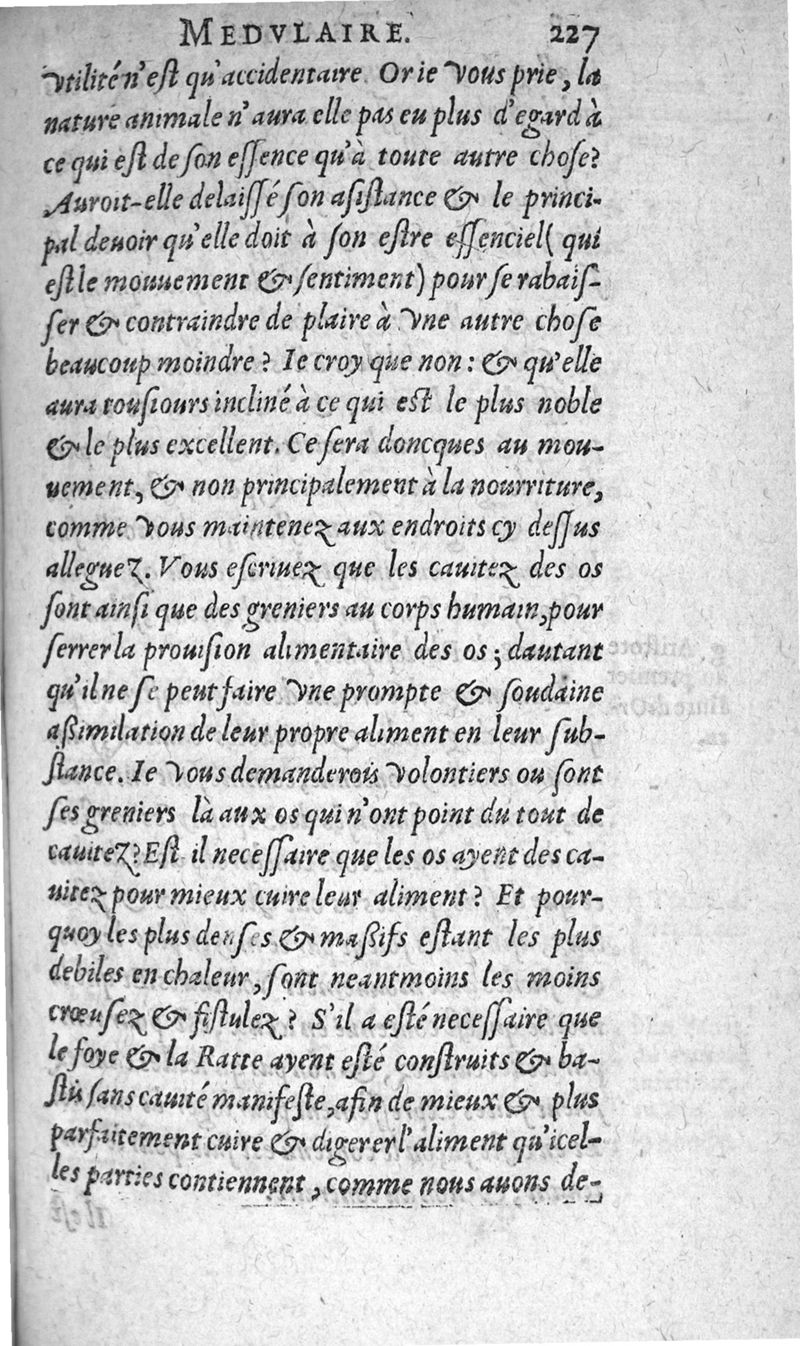 MEDVLAIRE. 227
vtilité n'eſt qu'accidentaire. Or ie vous prie, la
nature animale n'aura elle pas eu plus d'egard à
ce qui eſt de ſon eſſence qu'à toute autre choſe?
Auroit-elle delaiſſé ſon aſiſtance & le princi-
pal deuoir qu'elle doit à ſon eſtre eſſenciel ( qui
eſt le mouuement & ſentiment) pour ſe rabaiſ-
ſer & contraindre de plaire à vne autre choſe
beaucoup moindre ? Ie croy que non : & qu'elle
aura touſiours incliné à ce qui eſt le plus noble
& le plus excellent. Ce ſera doncques au mou-
uement, & non principalement à la nourriture,
comme vous maintenez aux endroits cy deſſus
alleguez. Vous eſcriuez que les cauitez des os
ſont ainſi que des greniers au corps humain, pour
ſerrer la prouiſion alimentaire des os ; dautant
qu'il ne ſe peut faire vne prompte & ſoudaine
aßimilation de leur propre aliment en leur ſub-
ſtance. Ie vous demanderois volontiers ou ſont
ſes greniers là aux os qui n'ont point du tout de
cauitez? Eſt il neceſſaire que les os ayent des ca-
uitez pour mieux cuire leur aliment ? Et pour-
quoy les plus denſes & maßifs eſtant les plus
debiles en chaleur, ſont neantmoins les moins
crœuſez & fiſtulez ? S'il a eſté neceſſaire que
le foye & la Ratte ayent eſté conſtruits & ba-
ſtis ſans cauité manifeſte, afin de mieux & plus
parfaitement cuire & digerer l'aliment qu'icel-
les parties contiennent, comme nous auons de-